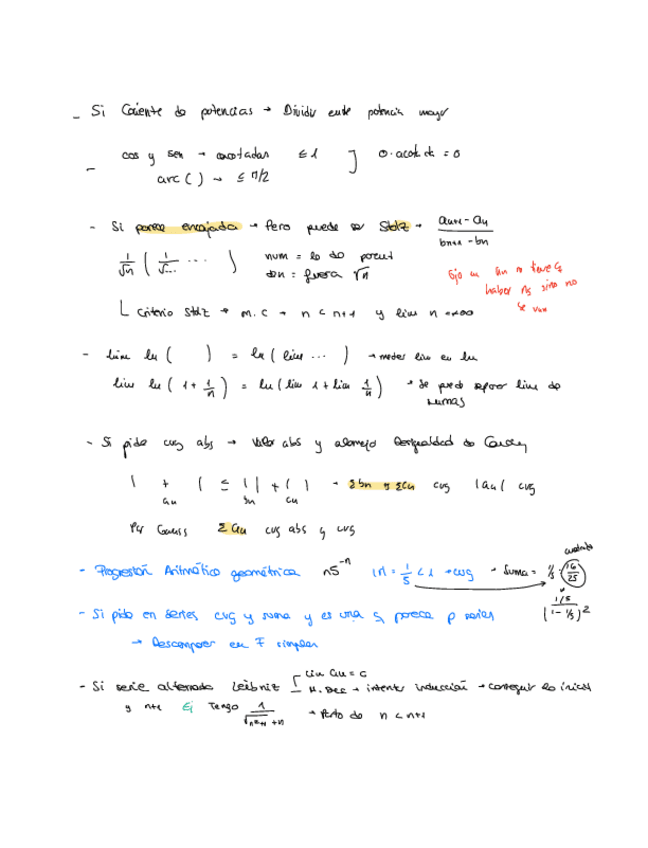 - Si Cociente de potencias → Dividir entre potencia mayor
- cos y sen → acotadas ≤ 1 ] 0 · acotada = 0
arc ( ) → ≤ π/2
- Si parece encajada → Pero puede ser Stolz → (an+1 - an)/(bn+1 - bn)
1/√n ( 1/√... ... ) num = lo de parent
den = fuera √n
Ojo en bn → tiene q
haber ns sino no
se van
Criterio Stolz → M.C → n < n+1 y lim n = +∞
- lim ln ( ) = ln ( lim ... ) → meter lim en ln
lim ln ( 1 + 1/n ) = ln ( lim 1 + lim 1/n ) → Se puede separar lim de
sumas
- Si pide cvg abs → Valor abs y desigualdad de
| + | ≤ | | + | | → Σbn y Σcn cvg |an| cvg
an bn cn
Por Gauss Σan cvg abs y cvg
- Progresión Aritmético geométrica n5^-n |r| = 1/5 < 1 → cvg → Suma = 16/25 cuadrado
(1/5)/(1 - 1/5)^2
- Si pide en series cvg y suma y es una q parece p series
→ Descomponer en F simples
- Si serie alternada Leibniz [ lim an = 0
M. Dec → intentar inducción → conseguir lo inicial
y n+1 Ej Tengo 1/(√(n²+1) + n) → Parto de n < n+1